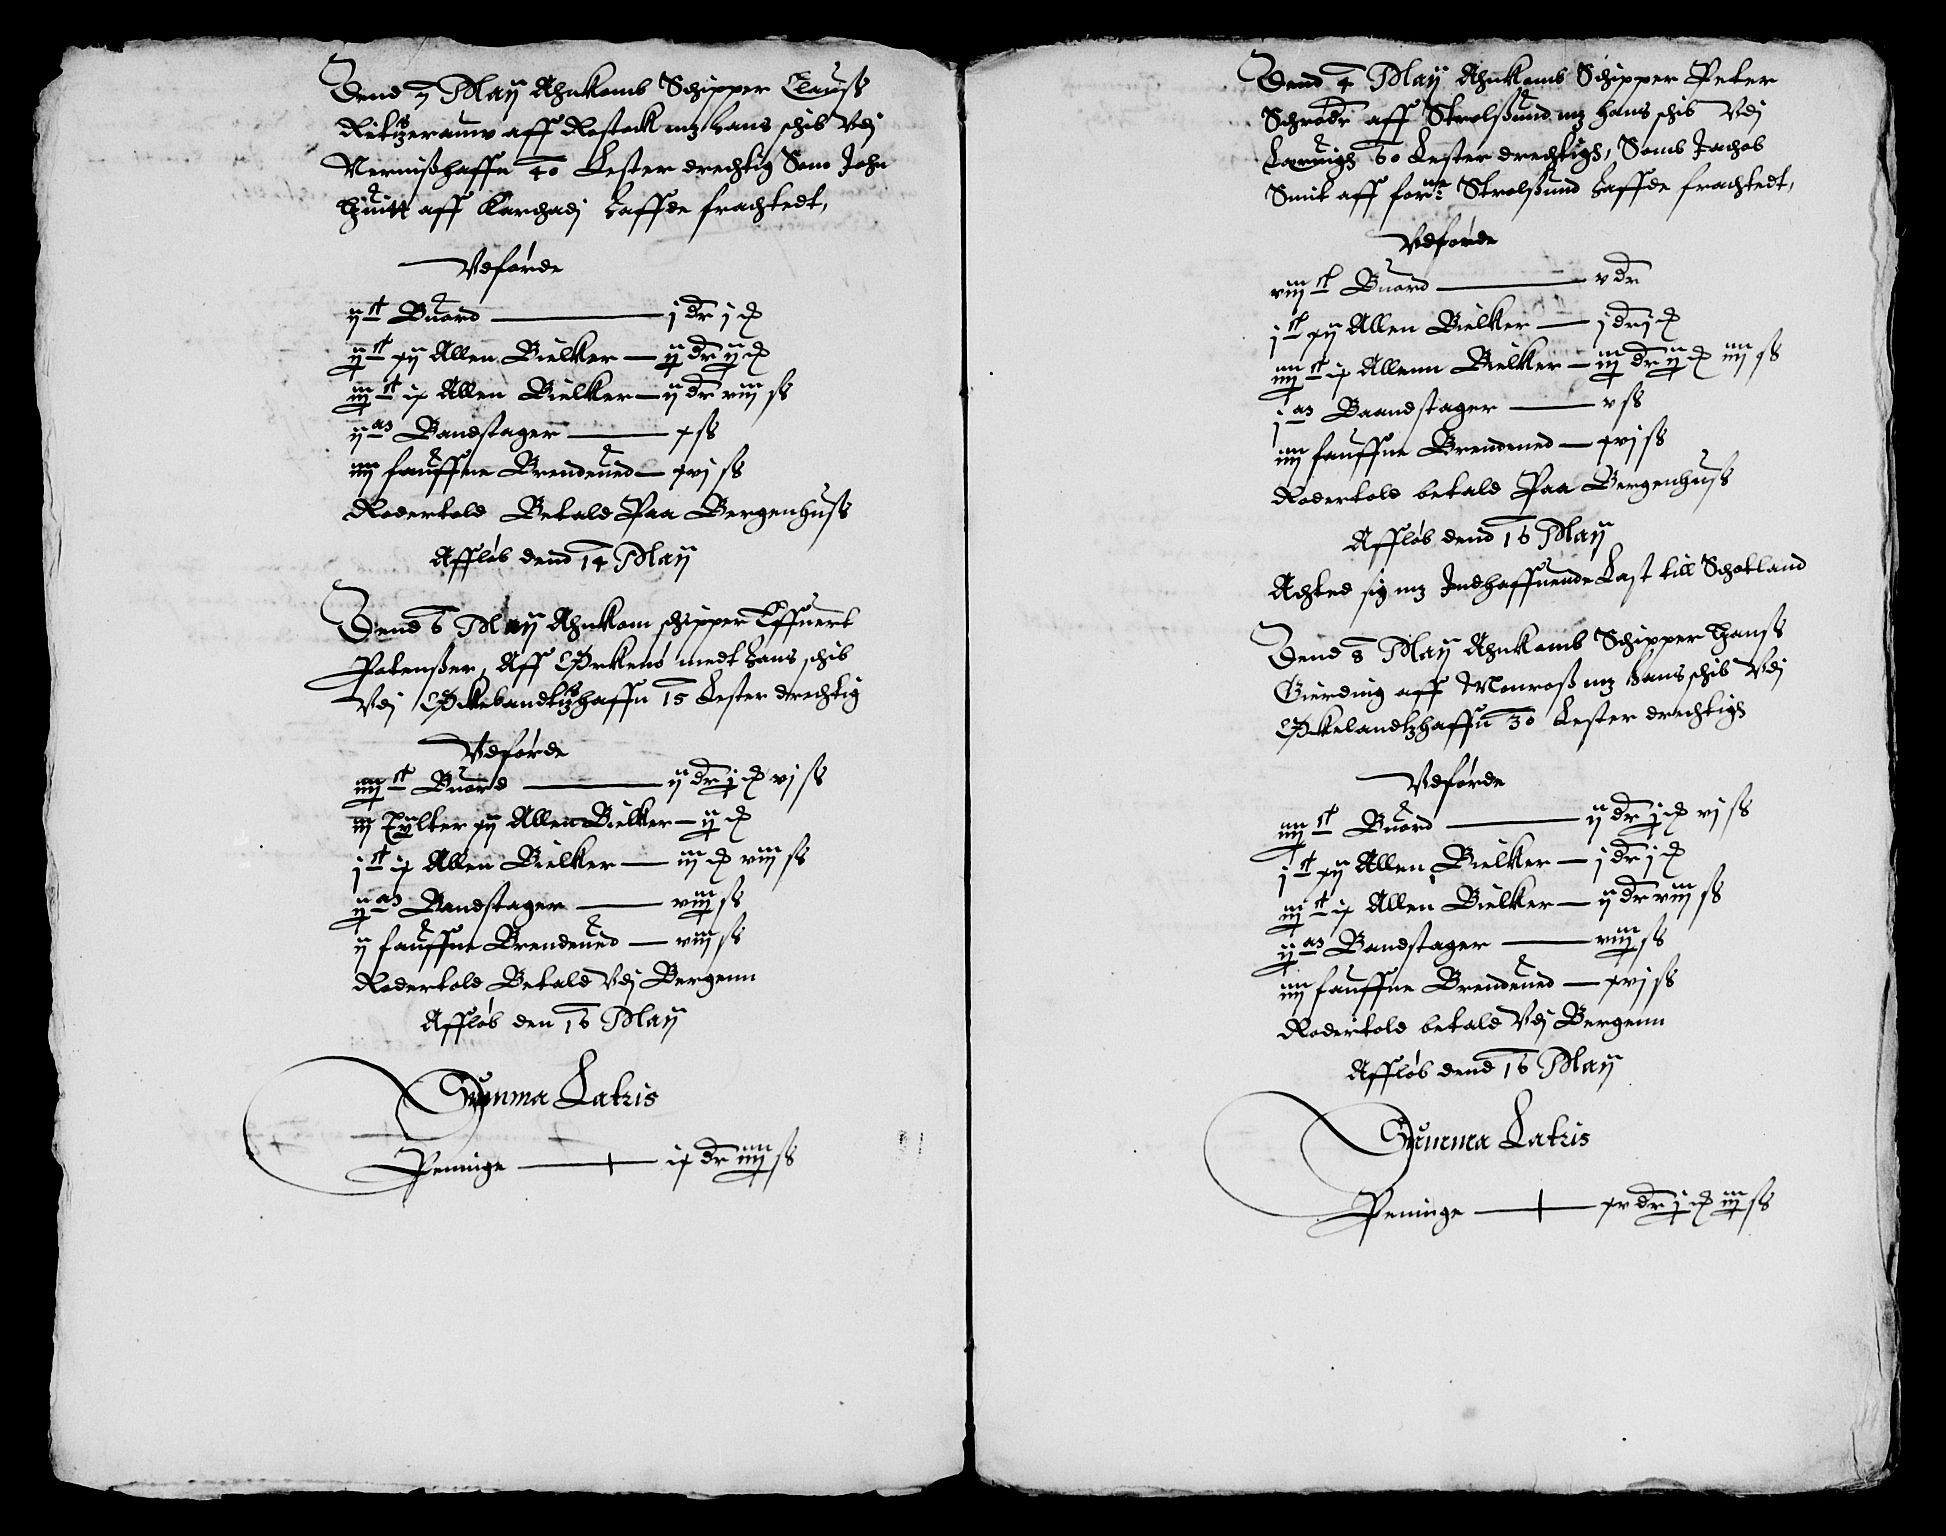 Dend 7 Maij Ahnkomb Schipper Clauß
Ritzerauw aff Rostock mz hans schib Vdj
Nernißhaffn 40 Lester drechtig Som John
Huitt aff Karchadj haffde frachtedt,
Vdførde
ij ct Buord — j dr j ₰
ij ct xij Allen Bielker — ij dr ij ₰
iij ct ix Allen Bielker — ij dr viij ss
ij as Bandstager — x ss
iiij fauffne Brendeued — xvj ss
Rodertold Betald Paa Bergenhuß
Affløb dend 14 Maij
Dend 6 Maij Ahnkom schipper Effuert
Petenßer, Aff Ørkenø medt hans schib
Vdj Økelandtzhaffn 15 Lester drechtig
Vdførde
iiij ct Buord — ij dr j ₰ vj ss
iij Tÿlter xij Allen Bielker — ij ₰
j ct ix Allen Bielker — iij ₰ viij ss
ij as Bandstager — viij ss
ij fauffne Brendeued — viij ss
Rodertold Betald Vdj Bergenn
Affløb den 16 Maij
Summa Latris
Peninge — ix dr iiij ss
Dend 4 Maij Ahnkomb Schipper Peter
Schrødr aff Strolßund mz hans schib Vdj
60 Lester drechtigh, Somb Jachob
Smit aff forne Strolßund haffde frachtedt,
Vdførde
viij ct Buord — v dr
j ct xij Allen Bielker — j dr j ₰
iiij ct ix Allenn Bielker — iij dr ij ₰ iiij ss
j as Baandstager — v ss
iiij fauffne Brendeued — xvj ss
Rodertold betald Paa Bergenhuß
Affløb dend 16 Maij
Achted sig mz Indhaffuende Last till Schotland
Dend 8 Maij Ahnkomb Schipper Hanß
Gierding aff Monroß mz hans schib Vdj
Økelandtzhaffn 30 Lester drechtigh
Vdførde
iiij ct Buord — ij dr j ₰ vj ss
j ct xij Allen Bielker — j dr j ₰
iij ct ix Allen Bielker — ij dr viij ss
ij as Bandstager — viij ss
iiij fauffne Brendeued — xvj ss
Rodertold betald Vdj Bergenn
Affløb dend 16 Maij
Summa Latris
Peninge — xv dr j ₰ iij ss